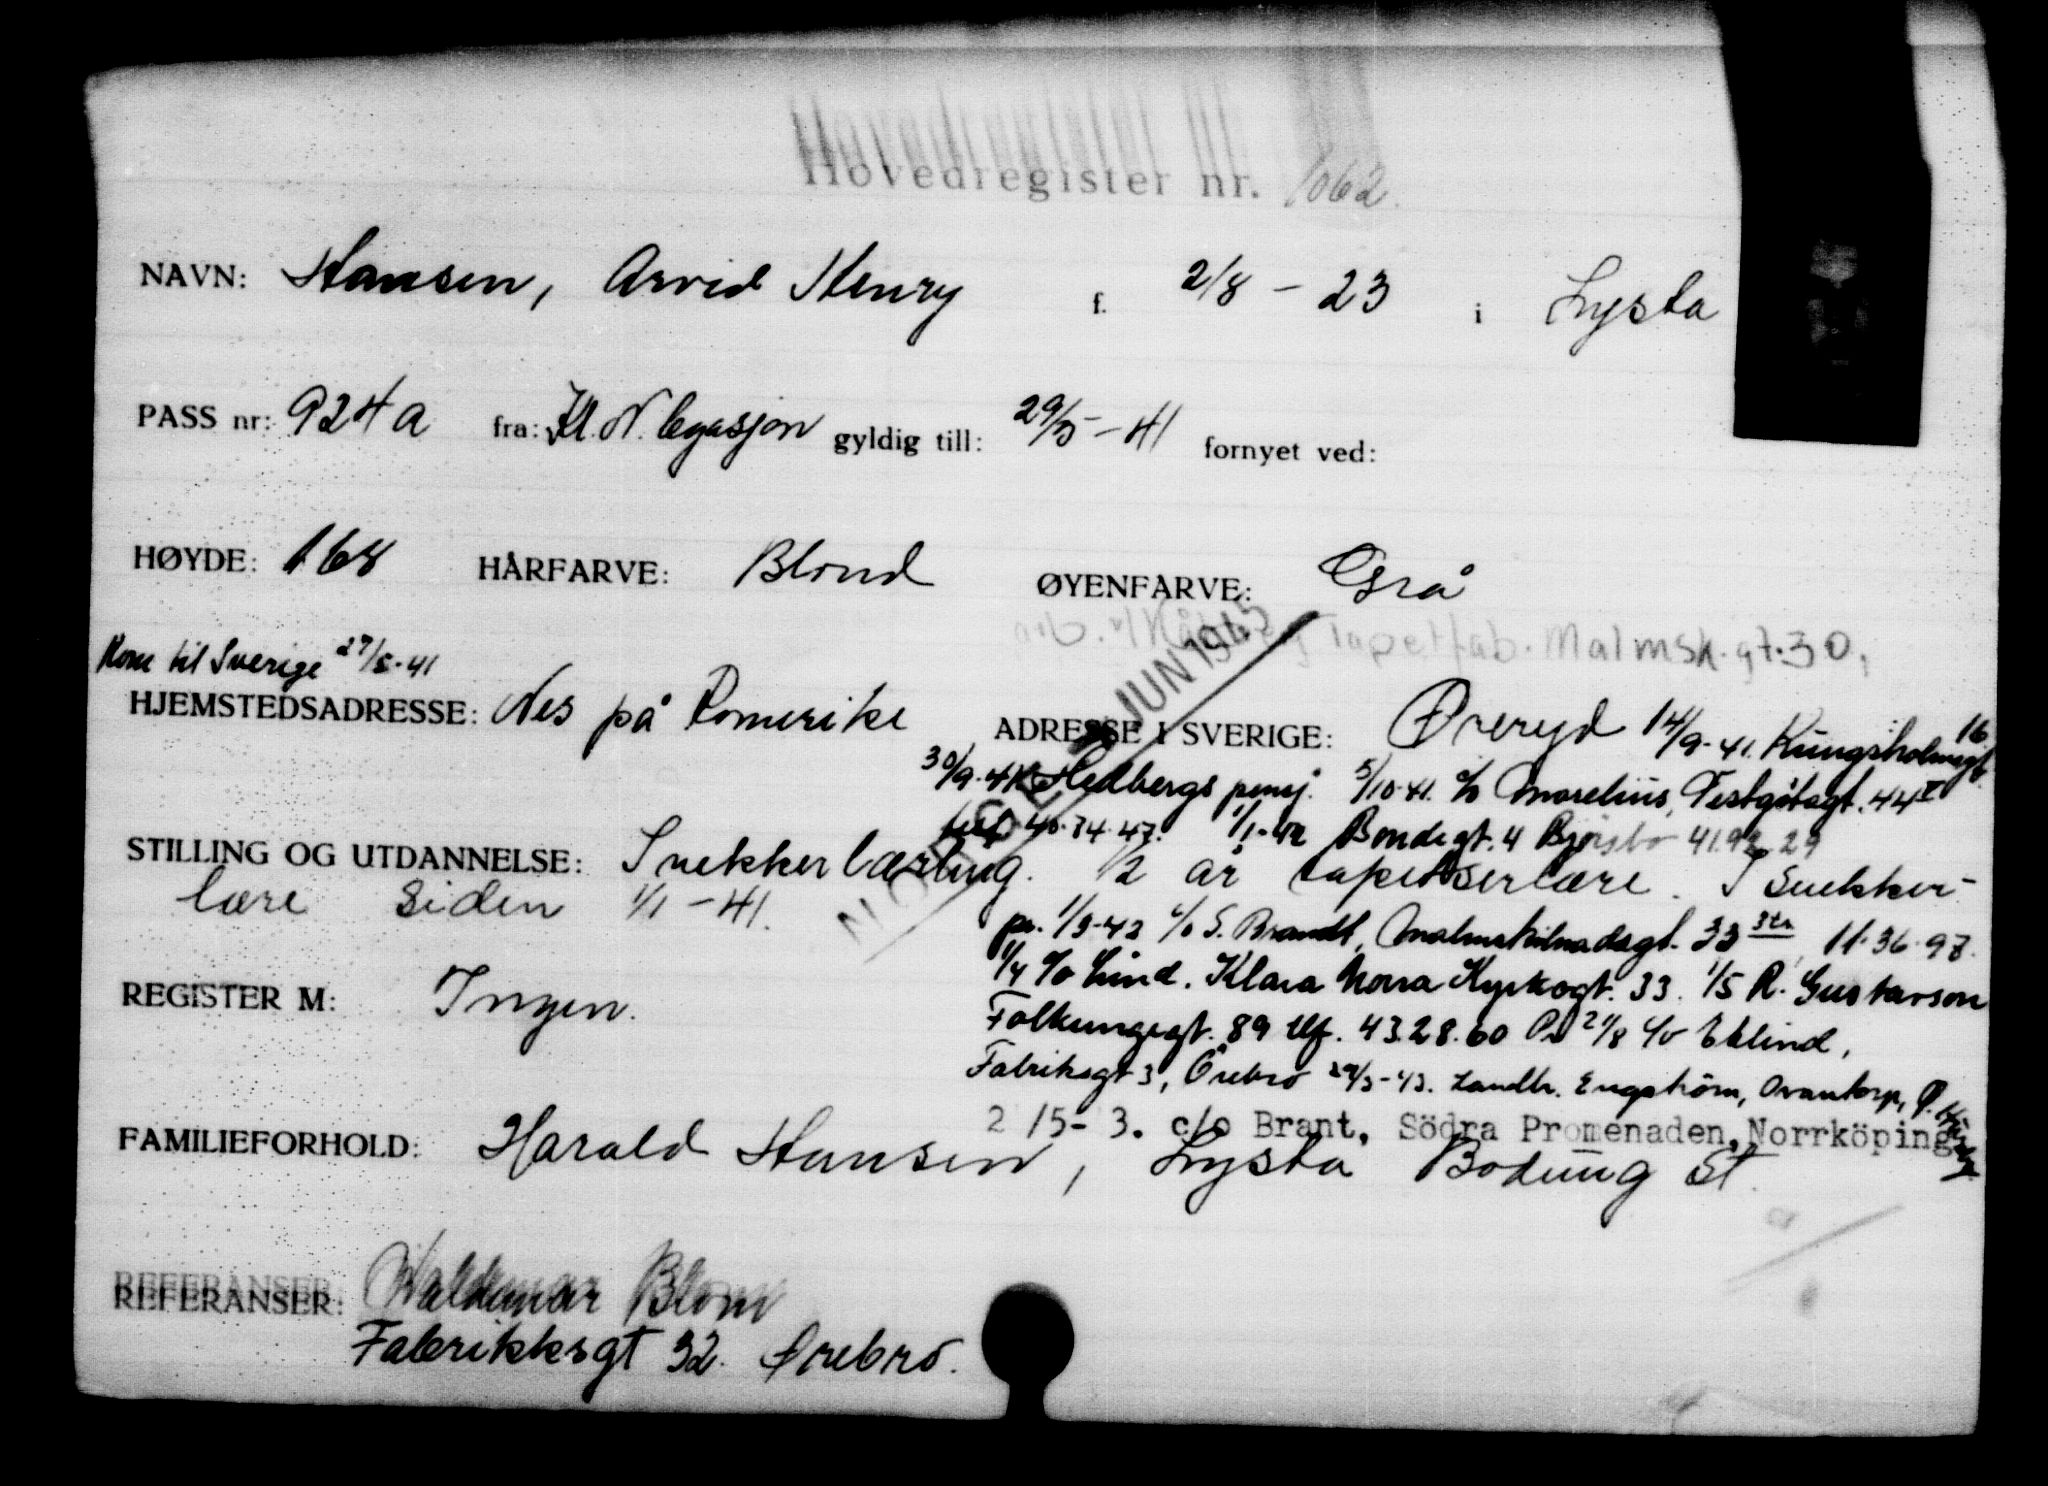 Hovedregister nr. 1062.
NAVN: Hansen, Arvid Henry f. 2/8 - 23 i Lysta
PASS nr: 924a fra: Kl. N. legasjon gyldig till: 29/5 - 41 fornyet ved:
HØYDE: 168 HÅRFARVE: Blond ØYENFARVE: Grå
arb. v/ Tapetfab. Malmsk.gt.30,
JUN 1945
Kom til Sverige 27/5-41
HJEMSTEDSADRESSE: Nes på Romerike ADRESSE I SVERIGE: Øreryd 14/9-41. Kungsholmsgt. 16
30/9-41 Hedbergs pensj. 5/10-41. c/o Morelius, Østgötagt. 44 I
telf 40.34.47. 1/1-42 Bondegt. 4 41.92.29
STILLING OG UTDANNELSE: Snekkerlærling. 1/2 år tapetserlære. I snekker-
lære siden 1/1 - 41.
NORGE
pr. 1/3-42 c/o S. Brandt, Malmskilnadsgt. 33 3tr 11.36.97.
1/4 c/o Lind. Klara Norra Kyrkogt. 33. 1/5 R. Gustavson
REGISTER M: Ingen.
Folkungagt. 89 tlf. 43.28.60 Pr 21/8 c/o Eklind,
Fabriksgt 3, Örebro 29/3-43. Landbr. Engström,
2/5-3. c/o Brant, Södra Promenaden, Norrköping
FAMILIEFORHOLD: Harald Hansen, Lysta Bodung st.
REFERANSER: Waldemar Blom
Fabrikksgt 32. Ørebro.